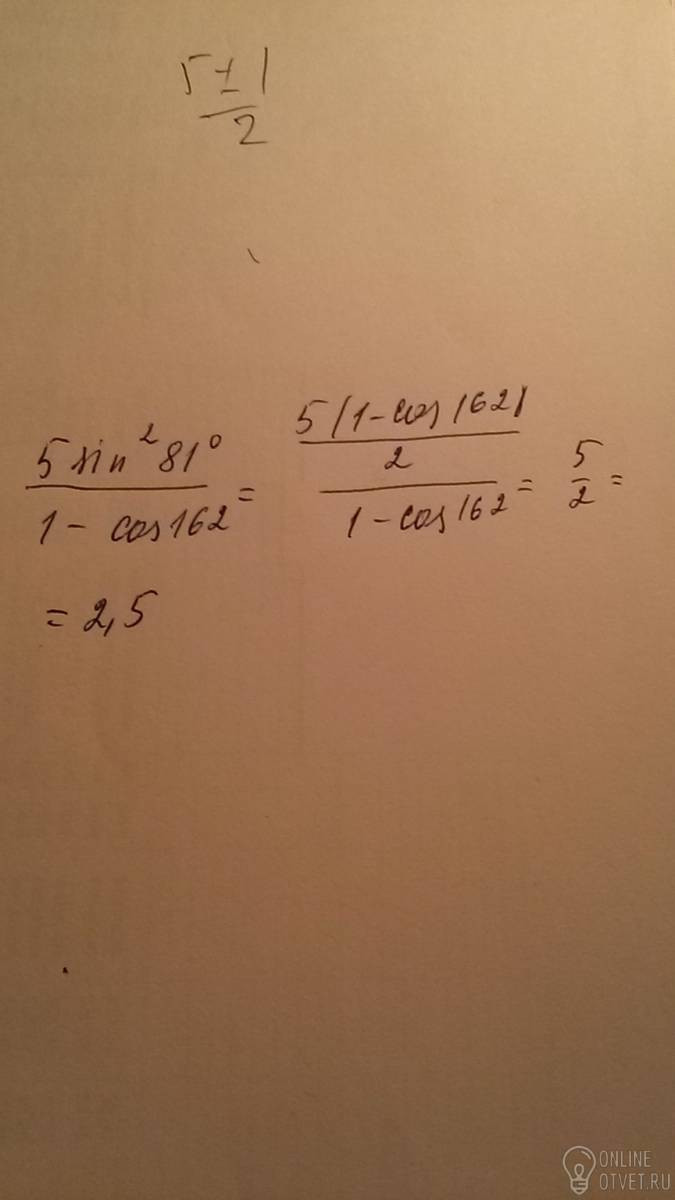 5±1
2
5 sin²81° / 1 - cos162 = 5(1-cos162) / 2 / 1-cos162 = 5/2 =
= 2,5
ONLINE
OTVET.RU